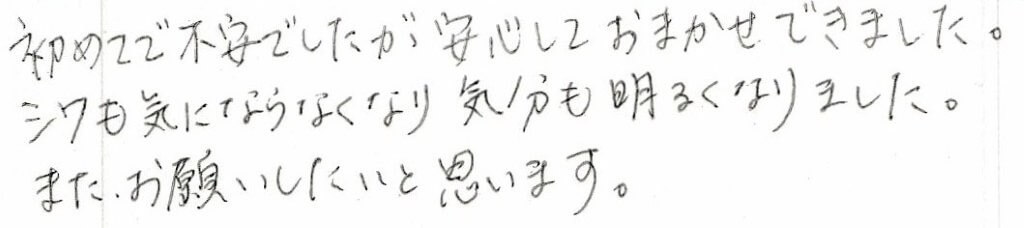 初めてで不安でしたが安心しておまかせできました。
シワも気にならなくなり気分も明るくなりました。
また、お願いしたいと思います。